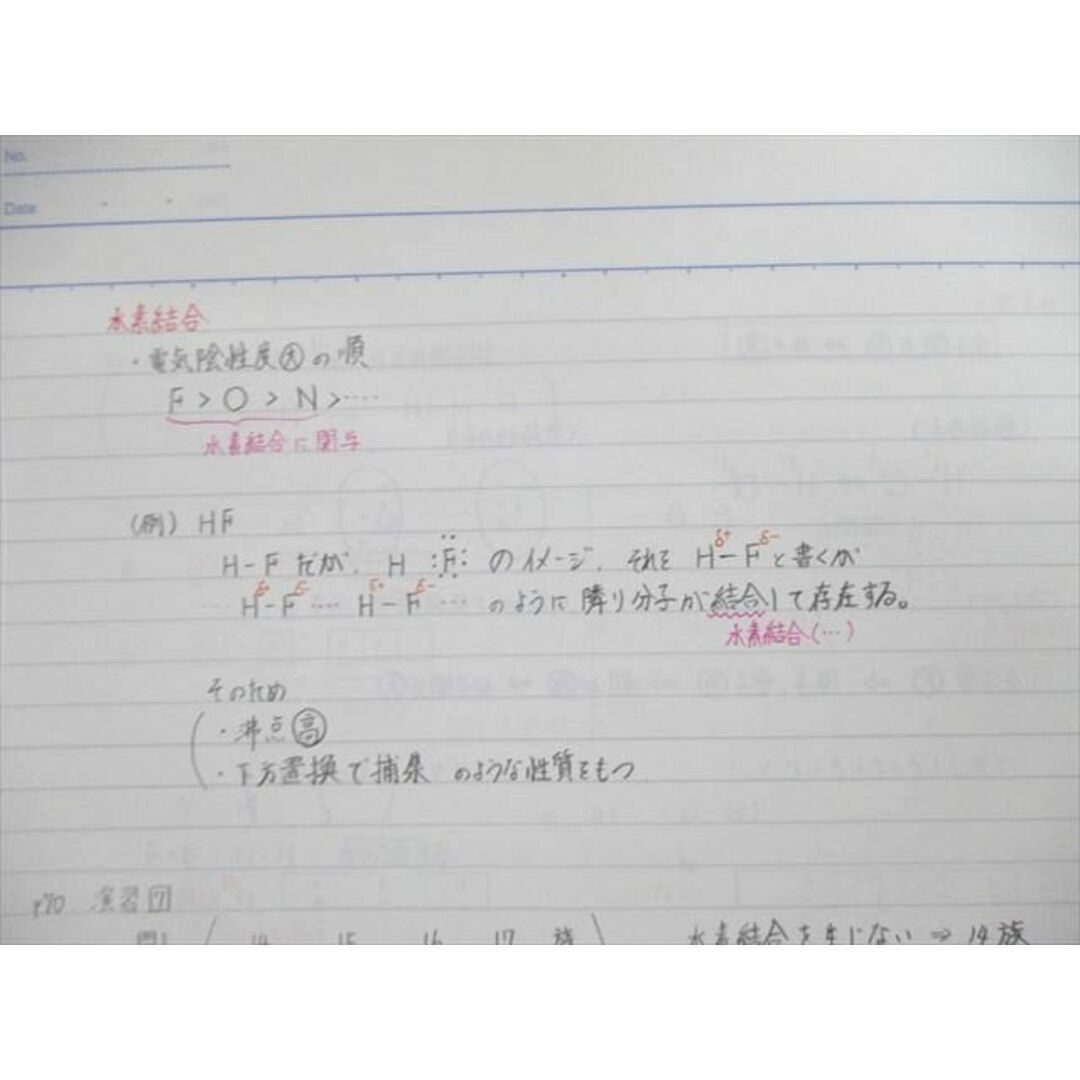 No.
Date
水素結合
・電気陰性度大の順
F > O > N > ‥‥
水素結合に関与
(例) HF
H-F だが, H :F: のイメージ. それを Hδ+-Fδ- と書くが
Hδ+-Fδ- ‥‥ Hδ+-Fδ- … のように隣り分子が結合して存在する。
水素結合(…)
そのため
・沸点高
・下方置換で捕集 のような性質をもつ
p70 演習7
問1 14 15 16 17 族 水素結合を生じない ⇒ 14族